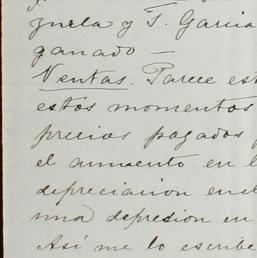 zuela y F. Garcia
ganado —
Ventas. Parece est
estos momentos
precios pagados
el aumento en l
depreciacion en el
una depresion en
Asi me lo escribe